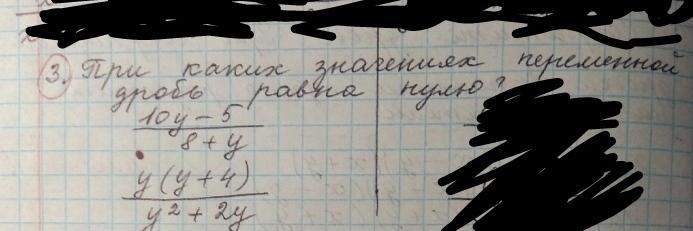 3. При каких значениях переменной
дробь равна нулю?
10y - 5
8 + y
y (y + 4)
y² + 2y